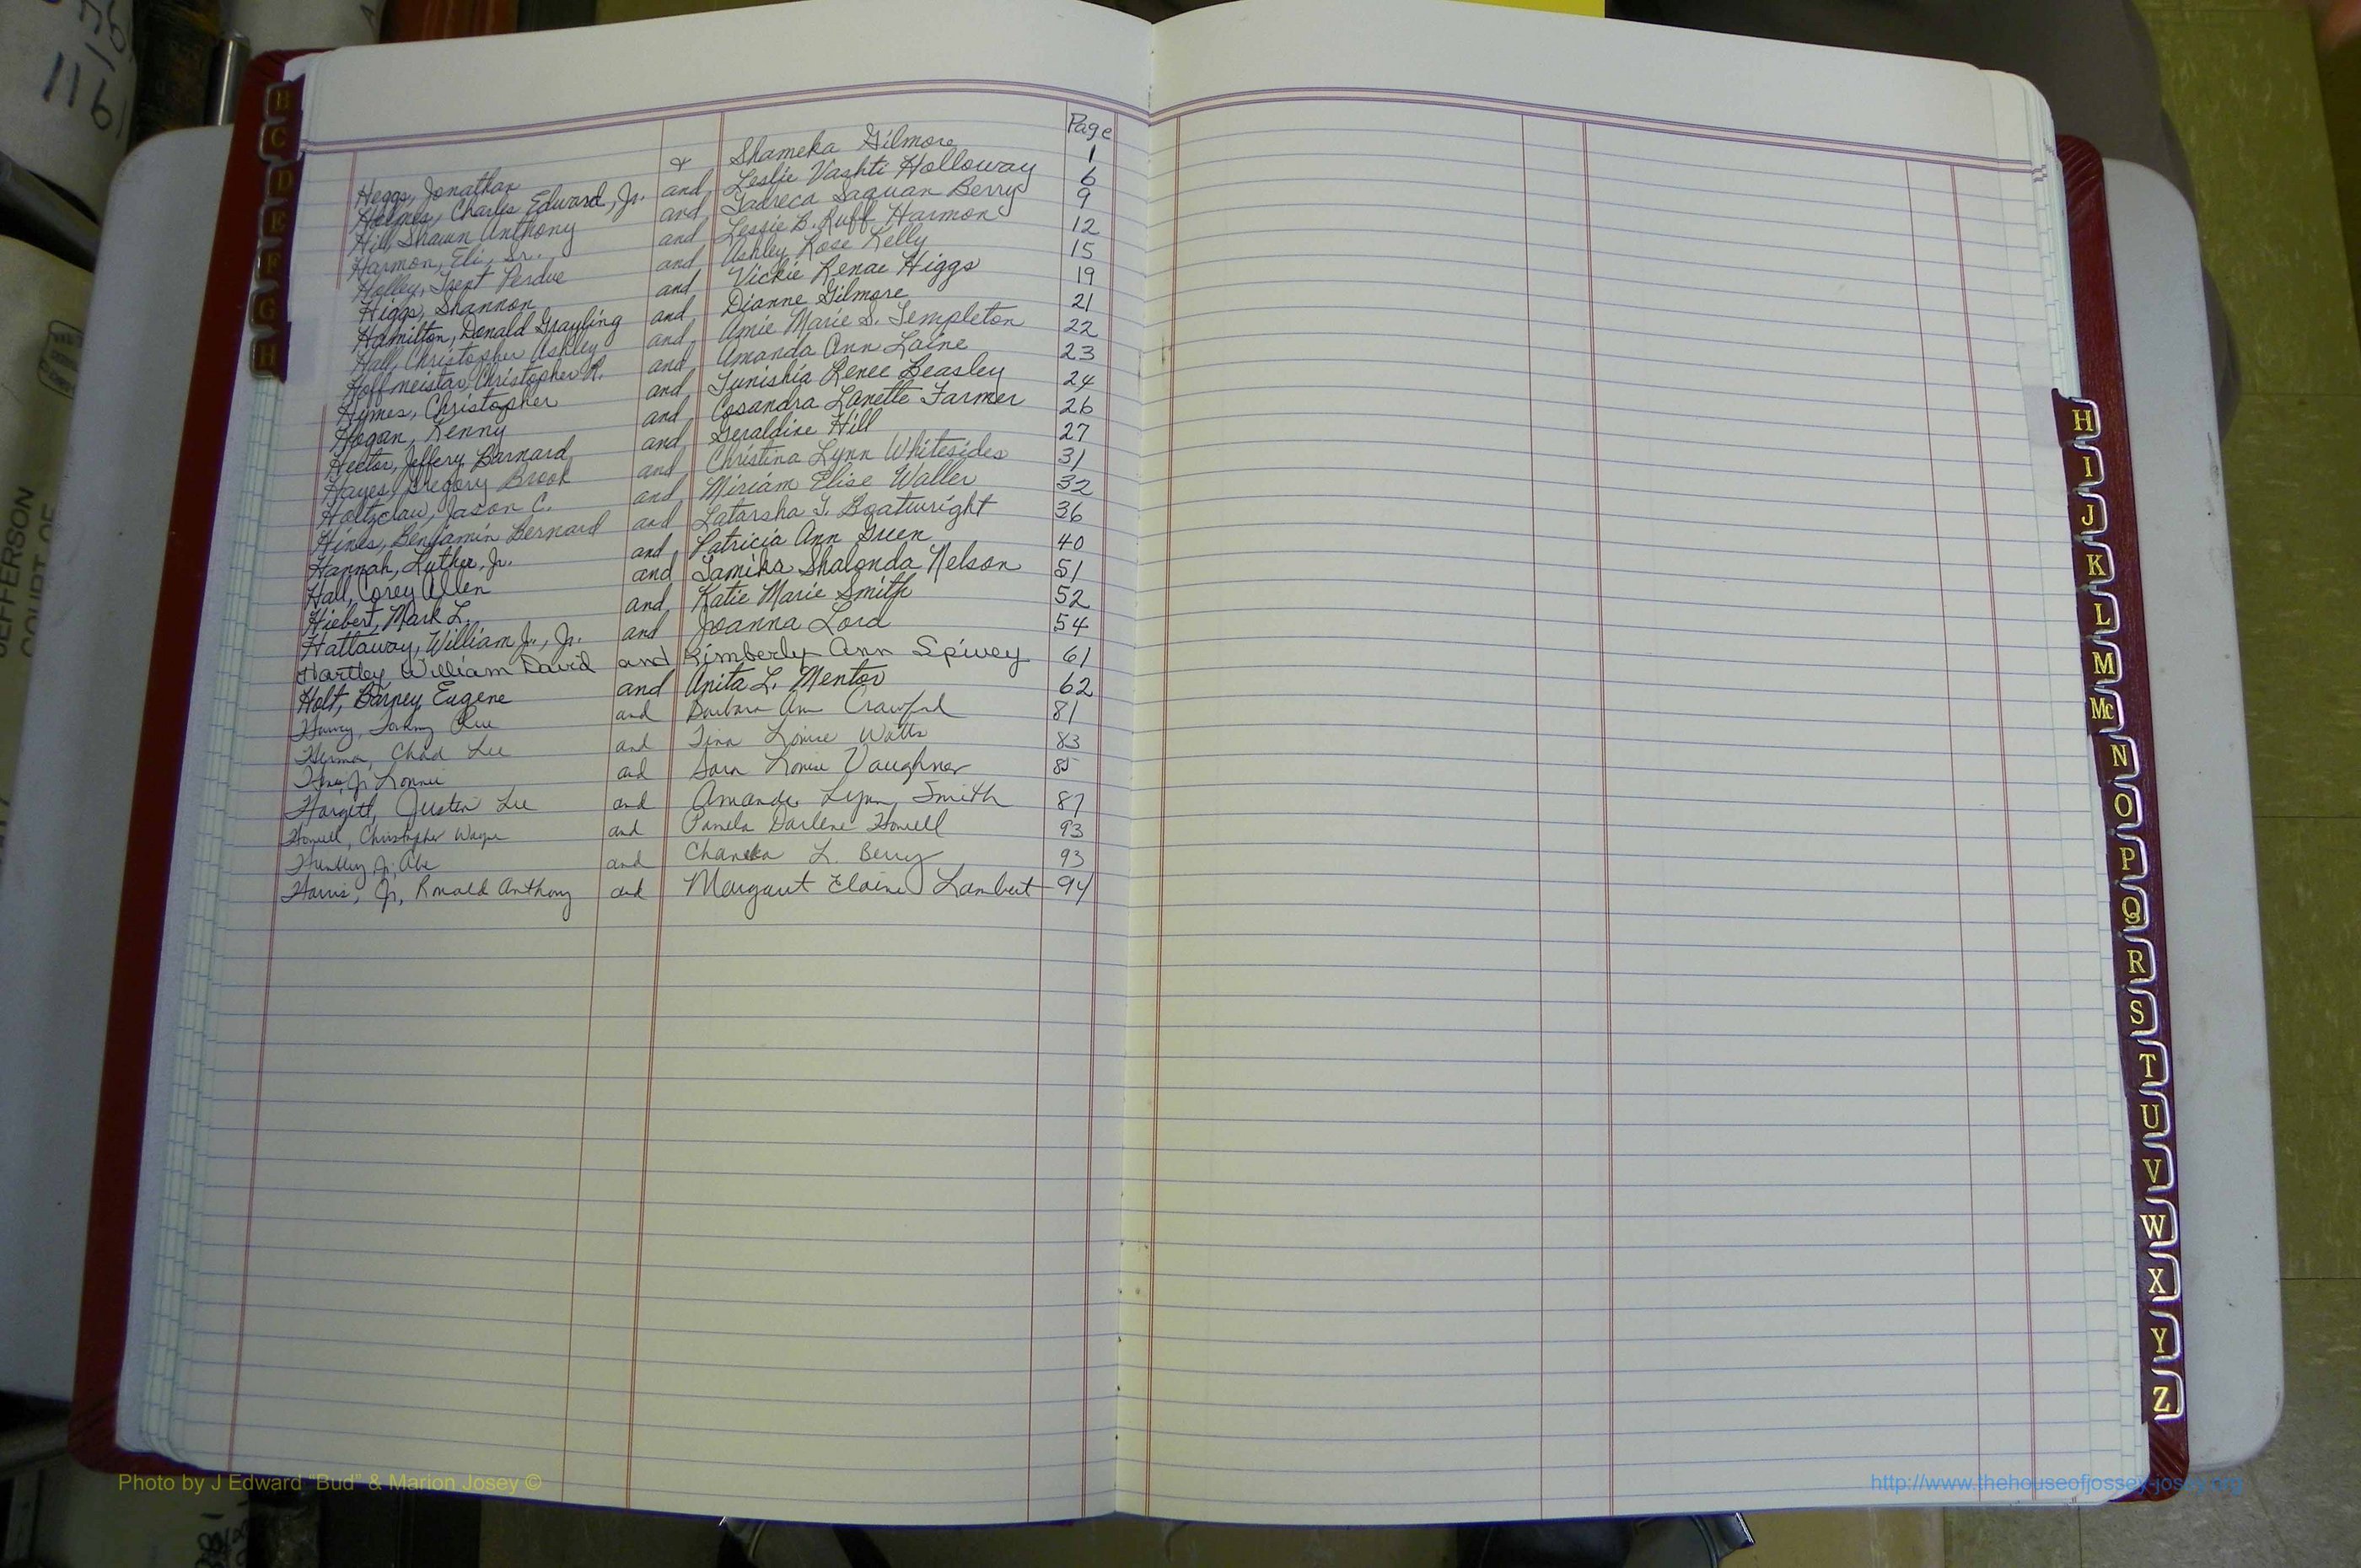 Page
Heggs, Jonathan & Shameka Gilmore 1
Holmes, Charles Edward, Jr. and Leslie Vashti Holloway 6
Hill, Shawn Anthony and Tadreca Saquan Berry 9
Harmon, Eli, Sr. and Lessie B. Ruff Harmon 12
Holley, Trent Perdue and Ashley Rose Kelly 15
Higgs, Shannon and Vickie Renae Higgs 19
Hamilton, Donald Grayling and Dianne Gilmore 21
Hall, Christopher Ashley and Amie Marie S. Templeton 22
Hoffmeister, Christopher R. and Amanda Ann Laine 23
Hymes, Christopher and Tunishia Renee Beasley 24
Hogan, Kenny and Casandra Lanette Farmer 26
Hector, Jeffery Barnard and Geraldine Hill 27
Hayes, Gregory Brook and Christina Lynn Whitesides 31
Holtzclaw, Jason C. and Miriam Elise Waller 32
Hines, Benjamin Bernard and Latarsha T. Boatwright 36
Hannah, Luther, Jr. and Patricia Ann Green 40
Hall, Corey Allen and Tamika Shalonda Nelson 51
Hiebert, Mark L. and Katie Marie Smith 52
Hattaway, William J., Jr. and Joanna Lord 54
Hartley William David and Kimberly Ann Spivey 61
Holt, Barney Eugene and Anita L. Mentor 62
and Barbara Ann Crawford 81
Chad Lee and Tina Louise Watts 83
Jr Lonnie and Sara Louise Vaughner 85
Hargett, Justin Lee and Amanda Lynn Smith 87
Howell, Christopher Wayne and Pamela Darlene Howell 93
Hundley Jr, Abe and L. Berry 93
Harris, Jr, Ronald Anthony and Margaret Elaine Lambert 94
B
C
D
E
F
G
H
H
I
J
K
L
M
Mc
N
O
P
Q
R
S
T
U
V
W
X
Y
Z
JEFFERSON
COURT OF
1161
Photo by J Edward "Bud" & Marion Josey ©
http://www.thehouseofjossey-josey.org